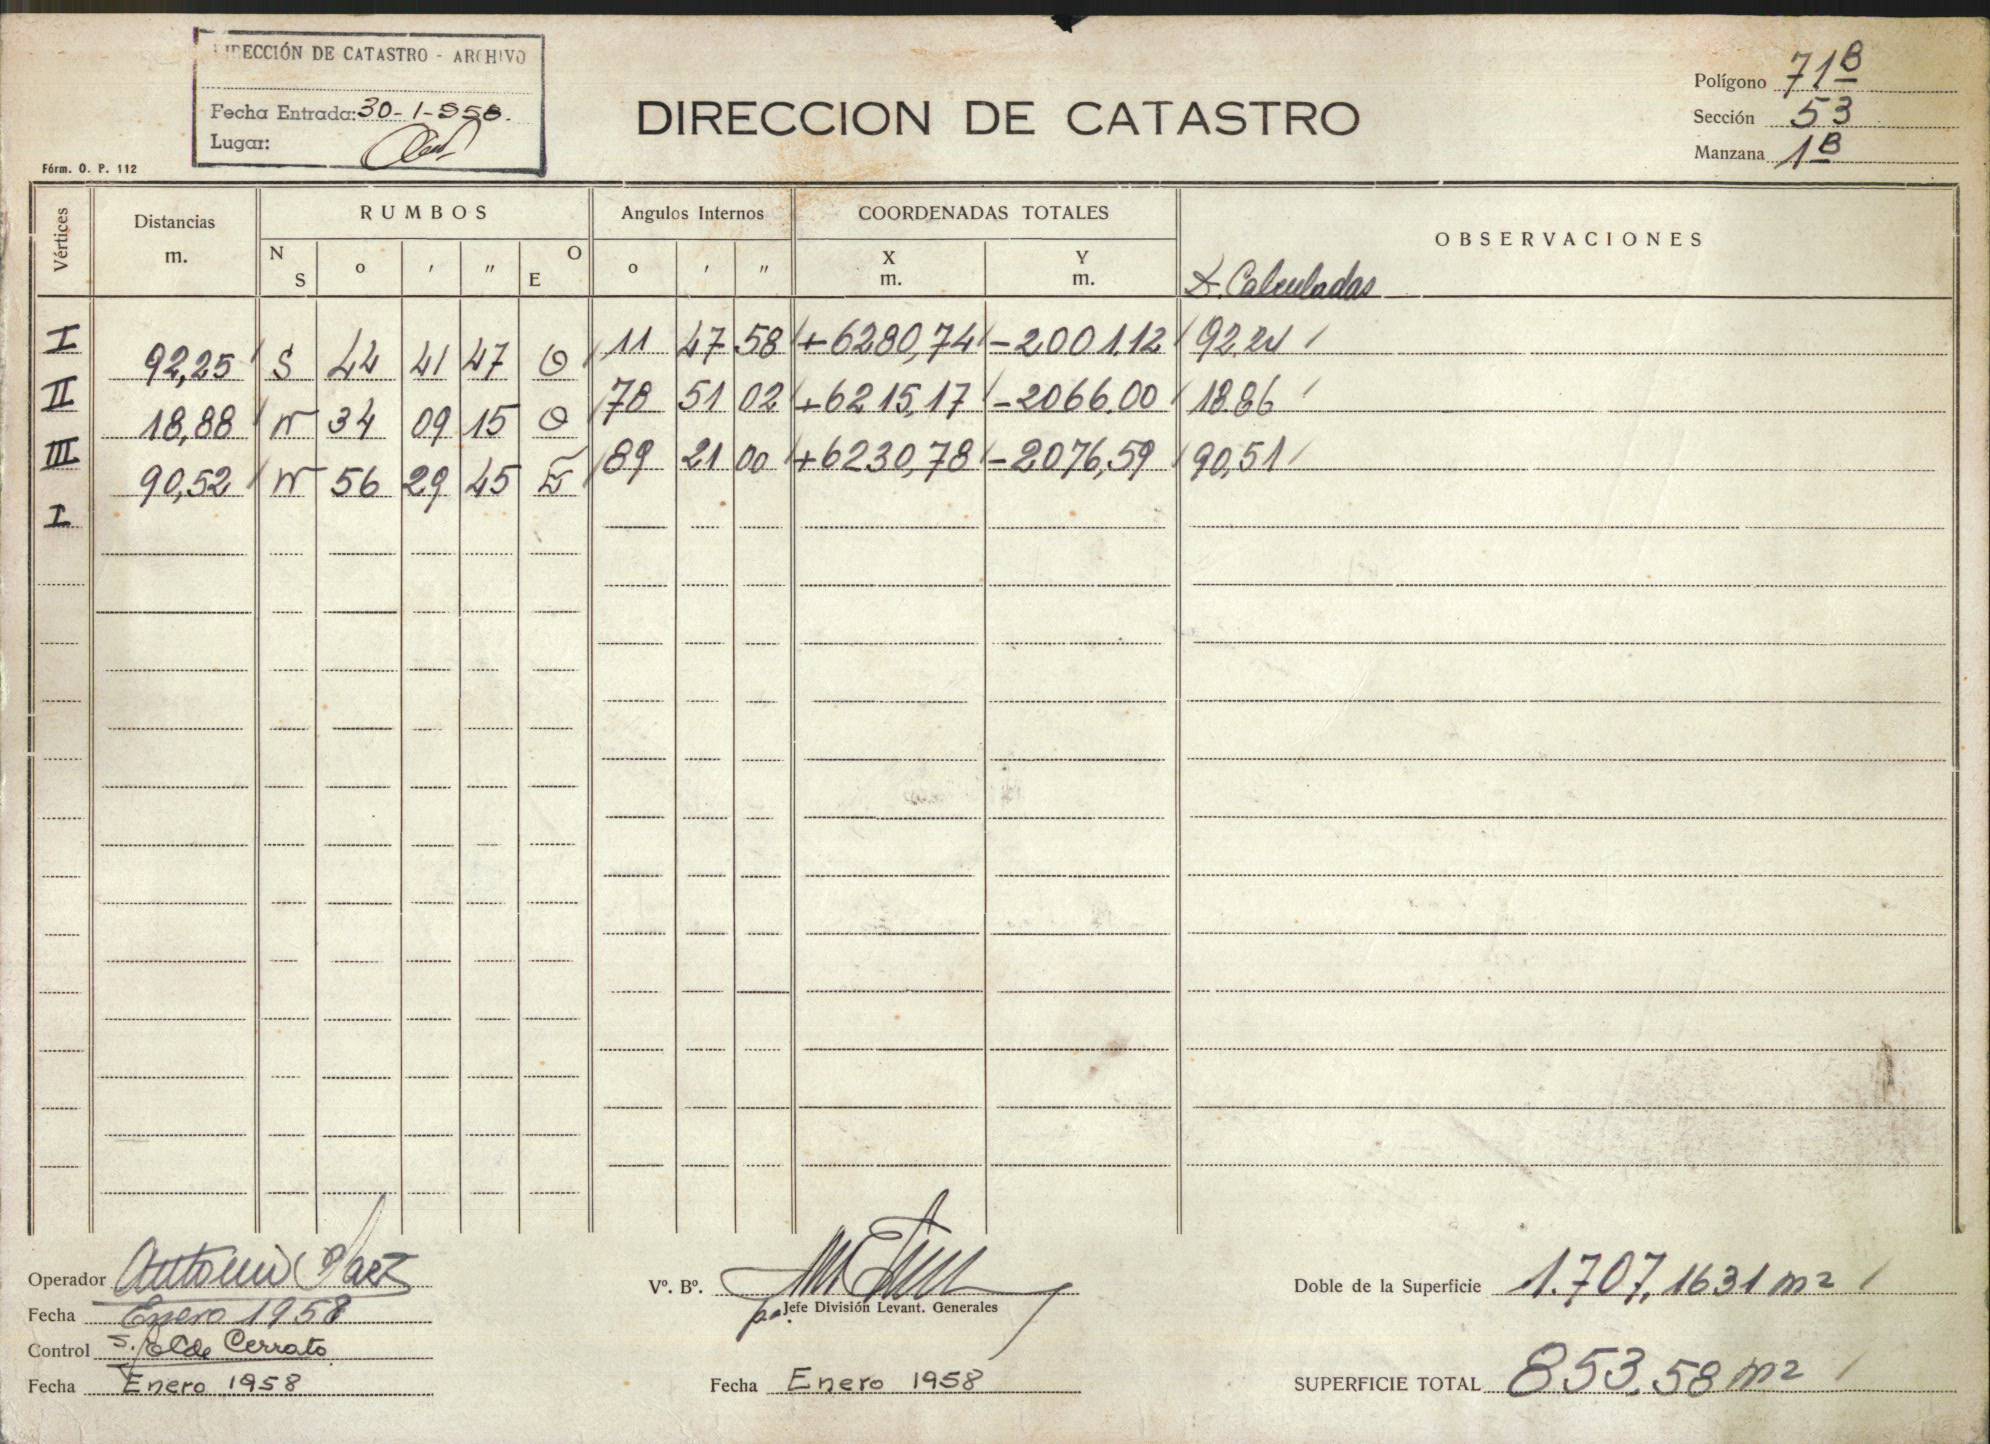 DIRECCIÓN DE CATASTRO - ARCHIVO
Fecha Entrada: 30-1-958.
Lugar:
Fórm. O. P. 112
DIRECCION DE CATASTRO
Polígono 71B
Sección 53
Manzana 1B
Vértices Distancias m. RUMBOS Angulos Internos COORDENADAS TOTALES OBSERVACIONES
N S o ' " E O o ' " X m. Y m.
D. Calculadas
I 11 47 58 +6280,74 -2001.12 92.24
92,25 S 44 41 47 O
II 78 51 02 +6215,17 -2066.00 18.86
18,88 N 34 09 15 O
III 89 21 00 +6230,78 -2076,59 90,51
90,52 N 56 29 45 E
I
Operador Antonio Paez
Fecha Enero 1958
Control S. Elde Cerrato
Fecha Enero 1958
Vº. Bº.
Jefe División Levant. Generales
Fecha Enero 1958
Doble de la Superficie 1.707,1631 m2
SUPERFICIE TOTAL 853.58 m2